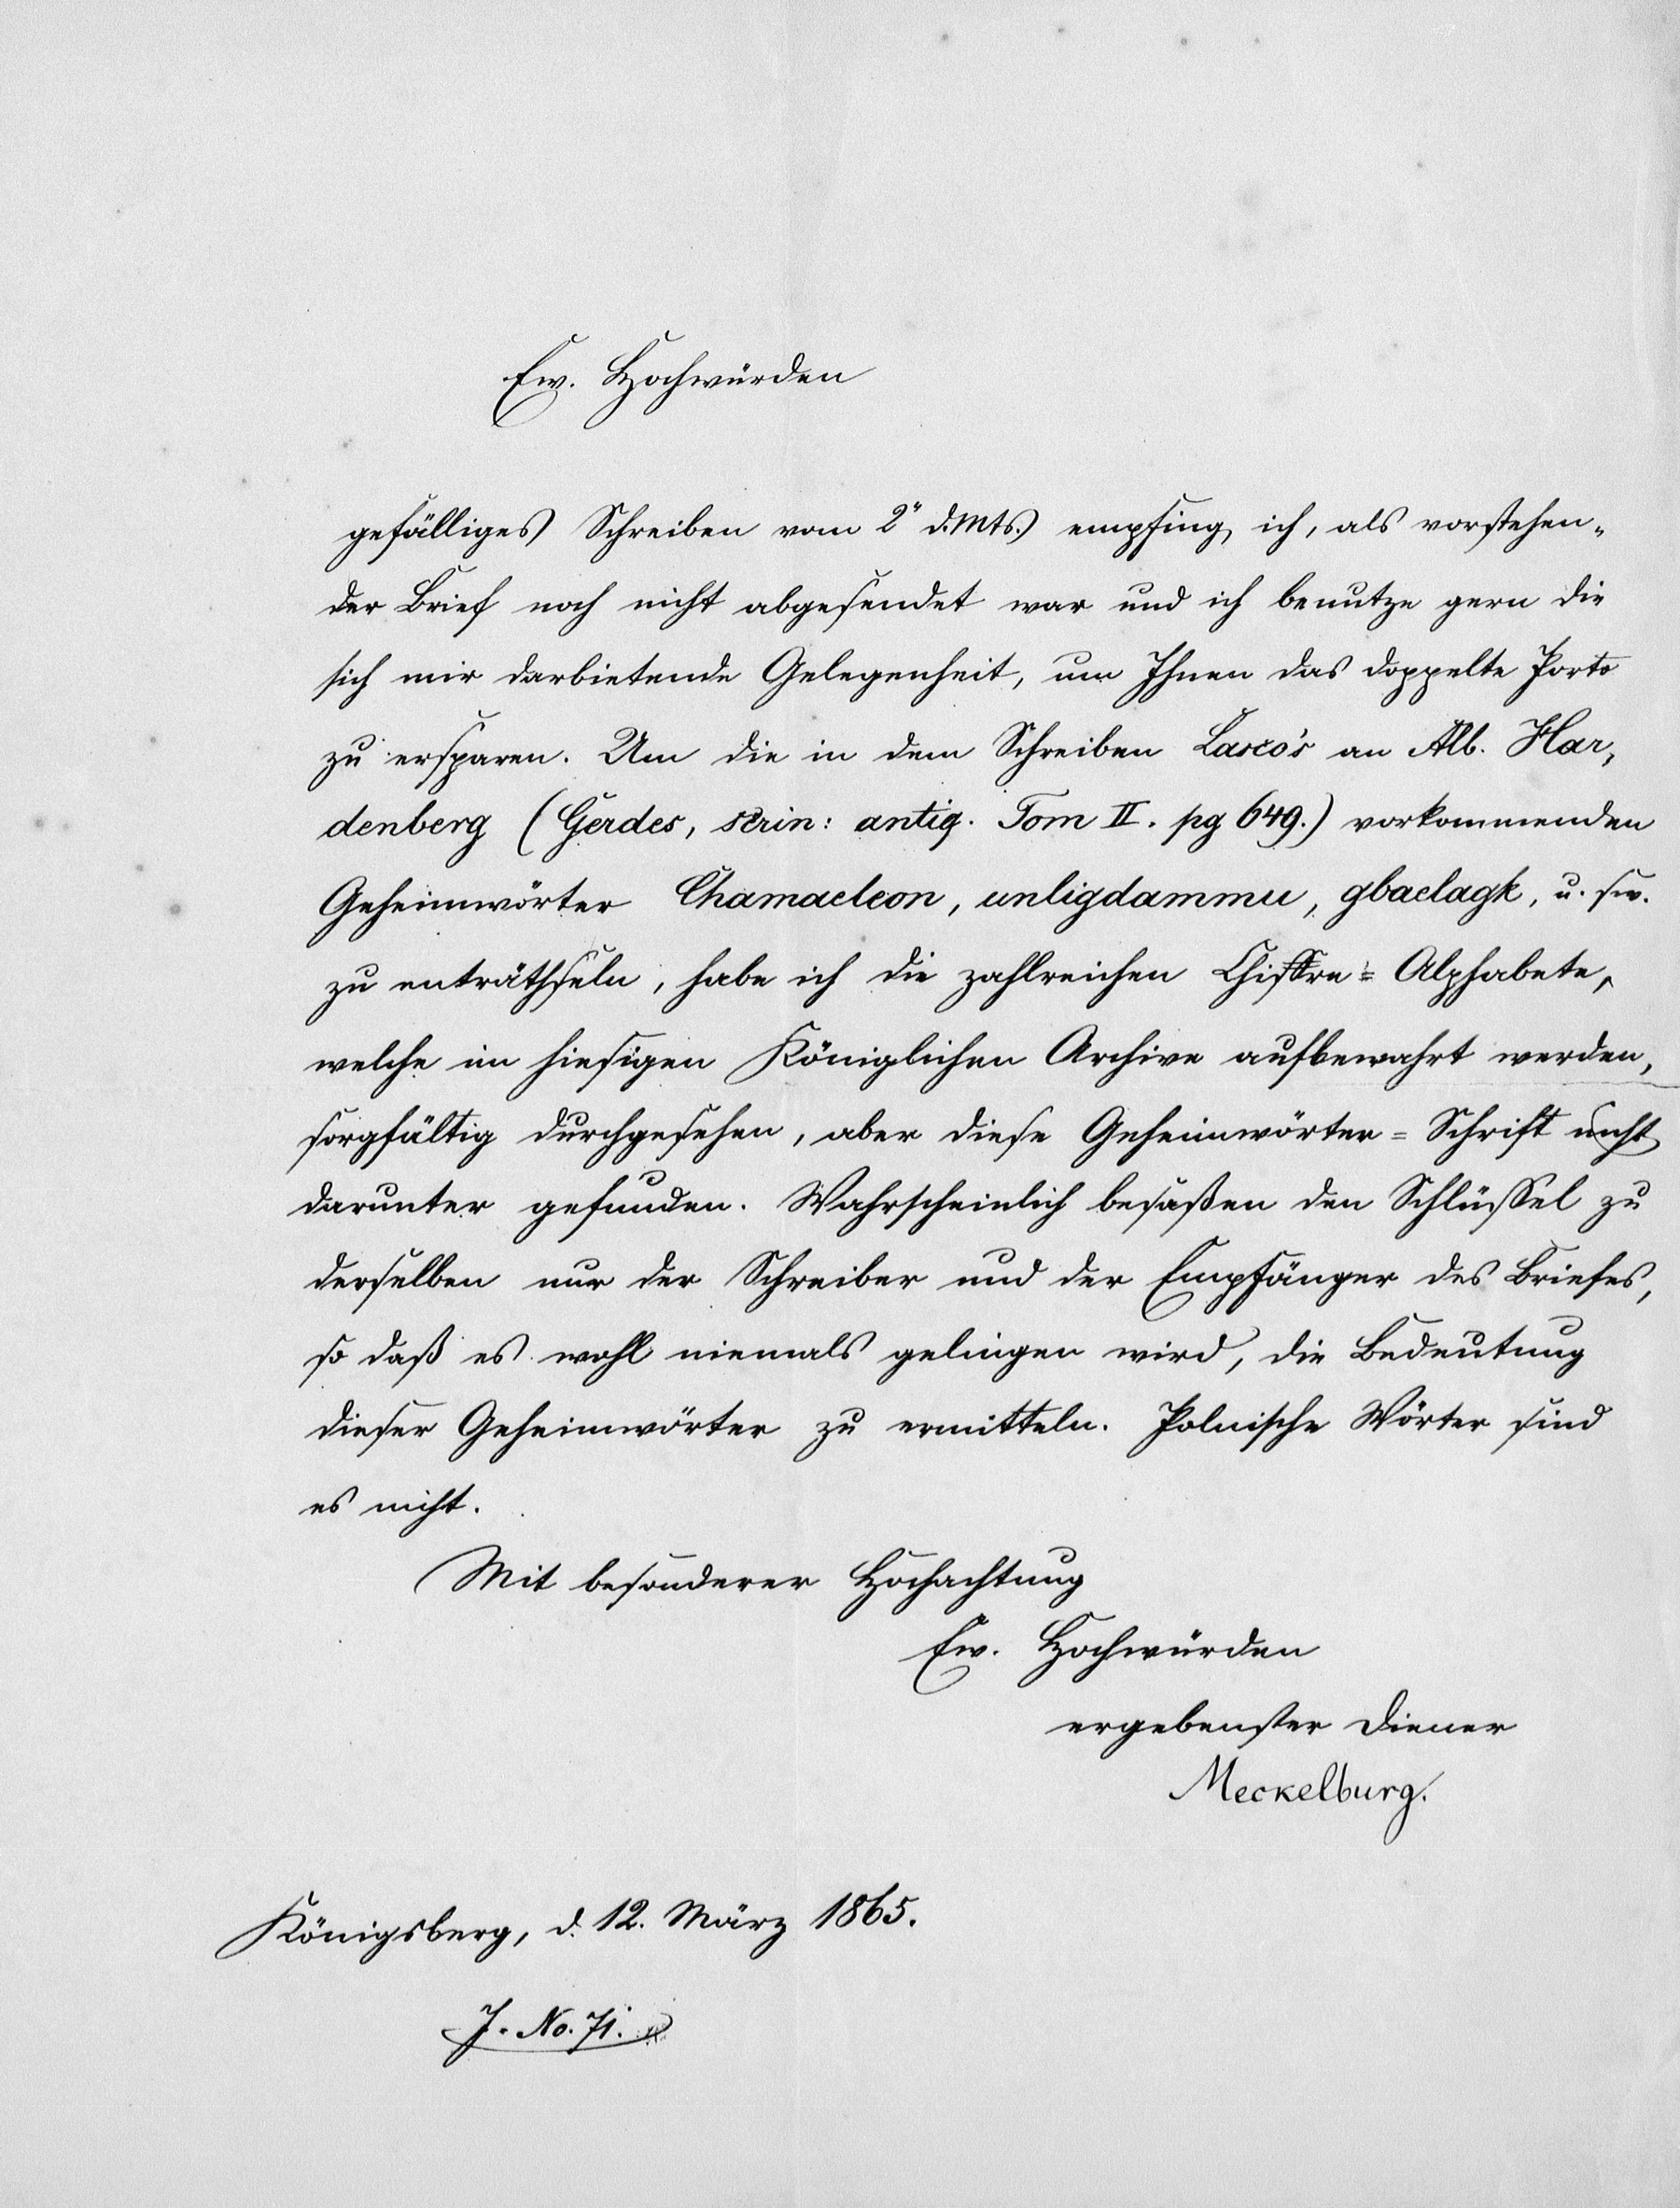 Ew. Hochwürden
gefälliges Schreiben vom 2" d. Mts. empfing ich, als vorstehen-
der Brief noch nicht abgesendet war und ich benutze gern die
sich mir darbietende Gelegenheit, um Ihnen das doppelte Porto
zu ersparen. Um die in dem Schreiben Lasco's an Alb. Har-
denberg (Gerdes, scrin: antiq. Tom II. pg 649.) vorkommenden
Geheimwörter Chamaeleon, unligdammu, gbaelagk, u. sw.
zu enträthseln, habe ich die zahlreichen Chiffre=Alphabete,
welche im hiesigen Königlichen Archive aufbewahrt werden,
sorgfältig durchgesehen, aber diese Geheimwörter=Schrift nicht
darunter gefunden. Wahrscheinlich besaßen den Schlüssel zu
derselben nur der Schreiber und der Empfänger des Briefes,
so daß es wohl niemals gelingen wird, die Bedeutung
dieser Geheimwörter zu ermitteln. Polnische Wörter sind
es nicht.
Mit besonderer Hochachtung
Ew. Hochwürden
ergebenster Diener
Meckelburg.
Königsberg, d. 12. März 1865.
J. No. 71.